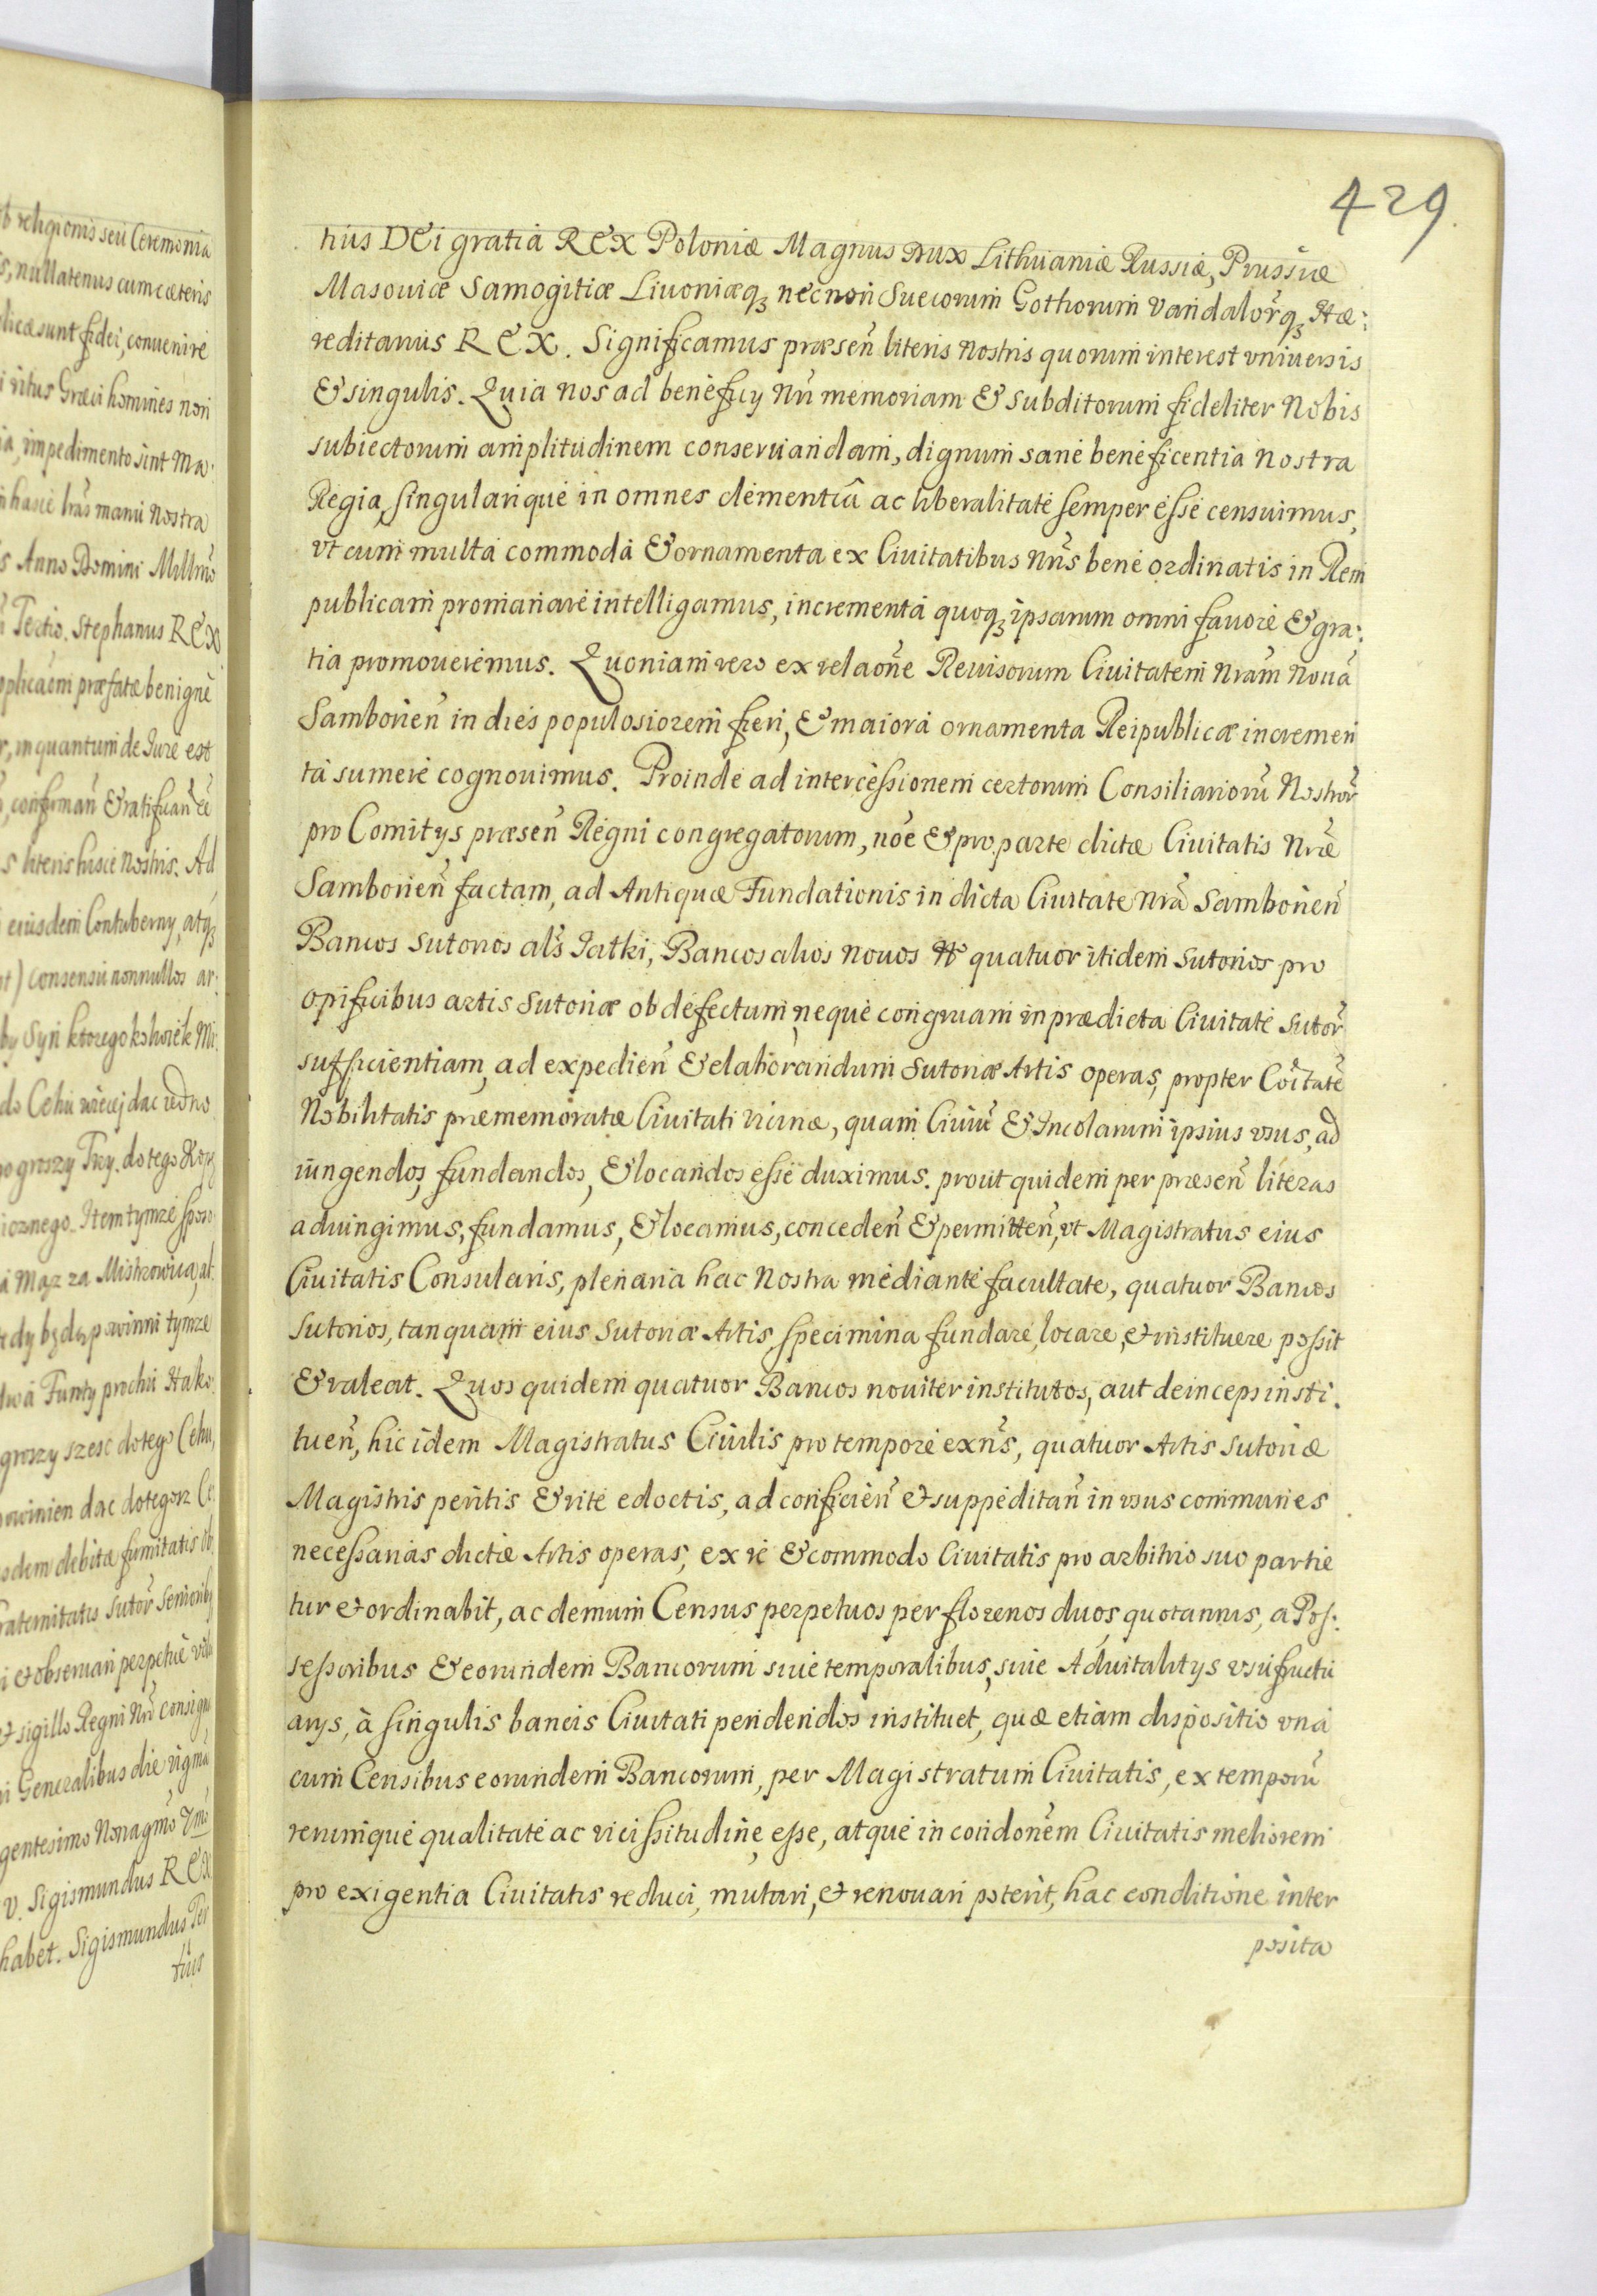 b religionis seu Ceremonia
s, nullatenus cum cæteris
licæ sunt fidei, conuenire
i ritus Græci homines non
ia, impedimento sint Ma:
hasce lrãs manu Nostra
s Anno Domini Millmõ
Tertio. Stephanus REX
pplicaõni præfatæ benigne
r, in quantum de Iure est
, confirmañ & ratificand ẽe
s literis hisce Nostris. Ad
eiusdem Contuberny, atq3
t) consensu nonnullos ar:
by Syn ktoregokolwiek Mi:
do Cechu więcej dac iedno
o groszy Trzy. do tego Kopy
icznego. Item tymże sposo
i Mąz za Mistrzowna, al
tedy będą powinni tymze
dwa Funty prochu Hako
groszy szesc do tego Cehu,
owinien dac do tegosz Ce
sdem debitæ firmitatis ob
raternitatis Sutor̃ Seniorib9
i et obseruari perpetue vola
et sigillo Regni Nr̃i consigna
i Generalibus die vigma
gentesimo Nonagmõ Vmõ
v. Sigismundus REX
habet. Sigismundus Ter
tius
429.
tius DEi gratia REX Poloniæ Magnus Dux Lithuaniæ Russiæ, Prussiæ
Masouiæ Samogitiæ Liuoniæq3 necnon Suecorum Gothorum Vandalor̃q3 Hæ:
reditarius REX. Significamus præseñ literis Nostris quorum interest vniuersis
& singulis. Quia nos ad beneficy Nr̃i memoriam & subditorum fideliter Nobis
subiectorum amplitudinem conseruandam, dignum sane beneficentia Nostra
Regia, singularique in omnes clementia ac liberalitate semper esse censuimus,
vt cum multa commoda & ornamenta ex Ciuitatibus Nr̃is bene ordinatis in Rem
publicam promanare intelligamus, incrementa quoq3 ipsarum omni fauore & gra:
tia promoueremus. Quoniam vero ex relaoñe Reuisorum Ciuitatem Nr̃am Noua
Samborieñ in dies populosiorem fieri, & maiora ornamenta Reipublicæ incremen
ta sumere cognouimus. Proinde ad intercessionem certorum Consiliarioru Nostror̃
pro Comitys præseñ Regni congregatorum, noẽ & pro parte dictæ Ciuitatis Nr̃æ
Samborieñ factam, ad Antiquæ Fundationis in dicta Ciuitate Nr̃a Samborieñ
Bancos Sutorios al's Iatki, Bancos alios nouos N° quatuor itidem Sutorios pro
opificibus artis Sutoriæ ob defectum, neque congruam in prædicta Ciuitate Sutor̃
sufficientiam, ad expedieñ & elaborandum Sutoriæ Artis operas, propter Coitatẽ
Nobilitatis præmemoratæ Ciuitati vicinæ, quam Ciuiũ & Incolarum ipsius vsus, ad
iungendos, fundandos, & locandos esse duximus. prout quidem per præseñ literas
adiungimus, fundamus, & locamus, concedeñ & permitteñ, vt Magistratus eius
Ciuitatis Consularis, plenaria hac Nostra mediante facultate, quatuor Bancos
Sutorios, tanquam eius Sutoriæ Artis, specimina fundare, locare, et instituere possit
& valeat. Quos quidem quatuor Bancos nouiter institutos, aut deinceps insti:
tueñ, hic idem Magistratus Ciuilis pro tempore exñs, quatuor Artis Sutoriæ
Magistris peritis & rite edoctis, ad conficieñ et suppeditañ in vsus communes
necessarias dictæ Artis operas, ex re & commodo Ciuitatis pro arbitrio suo partie
tur et ordinabit, ac demum Census perpetuos per florenos duos, quotannis, a Pos:
sessoribus & eorundem Bancorum siue temporalibus, siue Aduitalitys vsufructu
arys, à singulis bancis Ciuitati pendendos instituet, quæ etiam dispositio vna
cum Censibus eorundem Bancorum, per Magistratum Ciuitatis, ex temporũ
rerumque qualitate ac vicissitudine, esse, atque in condonẽm Ciuitatis meliorem
pro exigentia Ciuitatis reduci, mutari, et renouari poterit, hac conditione inter
posita